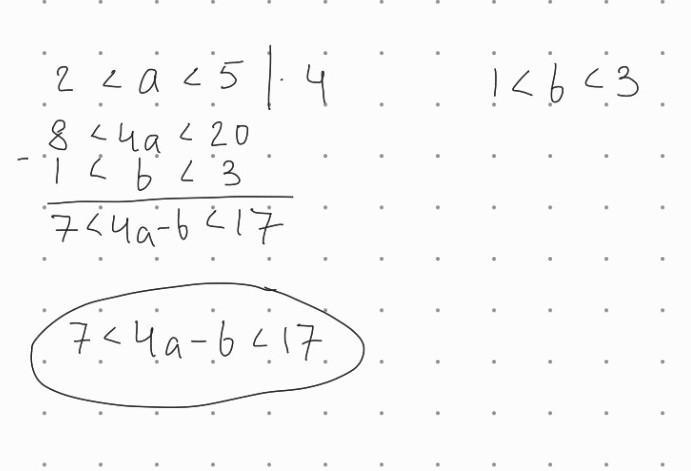 2 < a < 5 | · 4
1 < b < 3
8 < 4a < 20
- 1 < b < 3
7 < 4a - b < 17
7 < 4a - b < 17